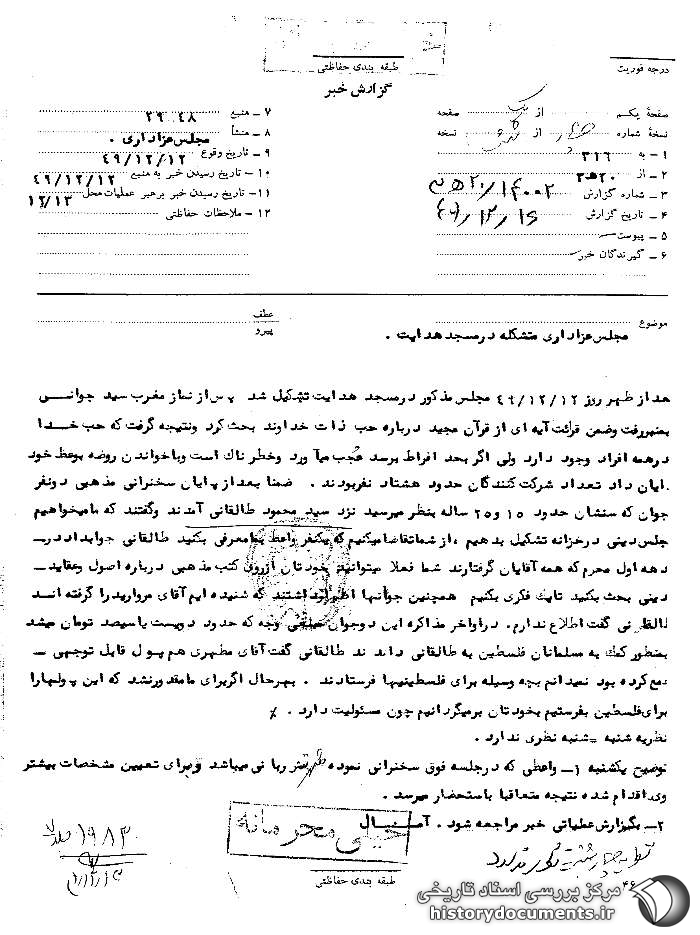 درجه فوریت
طبقه بندی حفاظتی
گزارش خبر
صفحهٔ یکم از یک صفحه
نسخهٔ شماره از نسخه
۱ـ به ۳۱۶
۲ـ از ۲۰ه۳
۳ـ شماره گزارش ۲۰/۱۴۰۰۲ه۳
۴ـ تاریخ گزارش ۴۹/۱۲/۱۶
۵ـ پیوست
۶ـ گیرندگان خبر
۷ـ منبع ۲۹۰۴۸
۸ـ منشأ مجلس عزاداری .
۹ـ تاریخ وقوع ۴۹/۱۲/۱۲
۱۰ـ تاریخ رسیدن خبر به منبع ۴۹/۱۲/۱۲
۱۱ـ تاریخ رسیدن خبر برهبر عملیات محل ۱۲/۱۳
۱۲ـ ملاحظات حفاظتی
موضوع
عطف
پیرو
مجلس عزاداری متشکله در مسجد هدایت .
بعد از ظهر روز ۴۹/۱۲/۱۲ مجلس مذکور در مسجد هدایت تشکیل شد پس از نماز مغرب سید جوانی
بمنبر رفت وضمن قرائت آیه ای از قرآن مجید درباره حب ذات خداوند بحث کرد ونتیجه گرفت که حب خدا
در همه افراد وجود دارد ولی اگر بحد افراط برسد عجب میآورد وخطر ناک است وباخواندن روضه بوعظ خود
پایان داد تعداد شرکت کنندگان حدود هشتاد نفر بودند . ضمنا بعد از پایان سخنرانی مذهبی دونفر
جوان که سنشان حدود ۱۵ و ۲۵ ساله بنظر میرسید نزد سید محمود طالقانی آمدند وگفتند که مامیخواهیم
جلس دینی در خزانه تشکیل بدهیم ، از شما تقاضا میکنیم که یکنفر واعظ بما معرفی بکنید طالقانی جواب داد در
دهه اول محرم که همه آقایان گرفتارند شما فعلا میتوانید بخودتان از روی کتب مذهبی درباره اصول وعقاید
دینی بحث بکنید تا یک فکری بکنیم همچنین جوانها اظهار داشتند که شنیده ایم آقای مروارید را گرفته اند
طالقانی گفت اطلاع ندارم . در اواخر مذاکره این دو جوان وجه که حدود دویست یا سیصد تومان میشد
بمنظور کمک به مسلمانان فلسطین به طالقانی دادند طالقانی گفت آقای مطهری هم پول قابل توجهی
جمع کرده بود نمیدانم بچه وسیله برای فلسطینیها فرستادند . بهرحال اگر برای ما مقدور نشد که این پولها را
برای فلسطین بفرستیم بخودتان برمیگردانیم چون مسئولیت دارد .
نظریه شنبه ـ شنبه نظری ندارد .
توضیح یکشنبه ۱ـ واعظی که در جلسه فوق سخنرانی نموده ربانی میباشد وبرای تعیین مشخصات بیشتر
وی اقدام شده نتیجه متعاقبا باستحضار میرسد .
۲ـ بگزارش عملیاتی خبر مراجعه شود .
نظریه چهارشنبه ندارد
خیلی محرمانه
طبقه بندی حفاظتی
۱۹۸۳
۴۶
مرکز بررسی اسناد تاریخی
historydocuments.ir